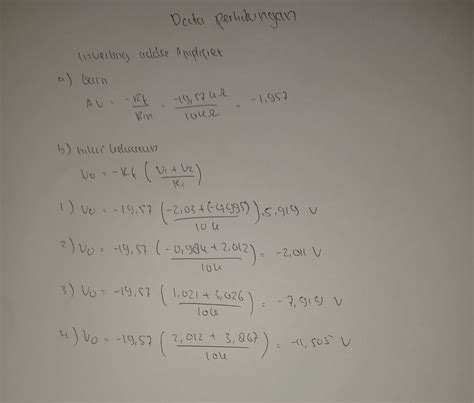 Data perhitungan
Inverting adder Amplifier
a) Gain
AV = -Rf/Rin = -19,57kΩ/10kΩ = -1,957
b) nilai keluaran
Vo = -Rf (V1 + V2/R1)
1) Vo = -19,57 (-2,03 + (-4,995)/10k) = 5,919 V
2) Vo = -19,57 (-0,984 + 2,012/10k) = -2,011 V
3) Vo = -19,57 (1,021 + 3,026/10k) = -7,919 V
4) Vo = -19,57 (2,012 + 3,867/10k) = -11,505 V